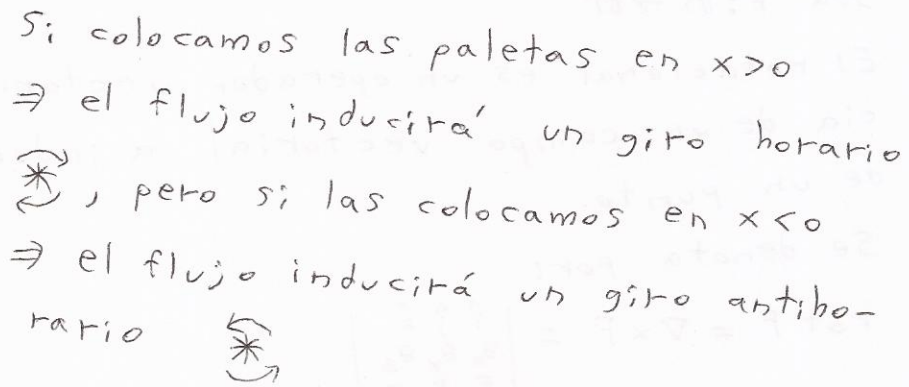 Si colocamos las paletas en x>0
⇒ el flujo inducirá un giro horario
, pero si las colocamos en x<0
⇒ el flujo inducirá un giro antiho-
rario